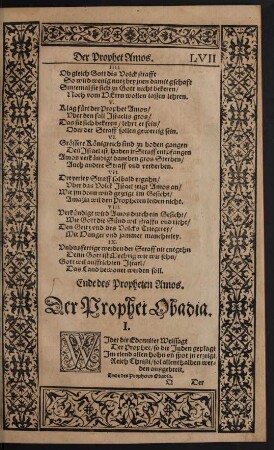 Der Prophet Amos. LVII
IIII.
Ob gleich Gott dis Volck strafft
So wird wenig nutzber nun damit gschafft
Sintemal sie sich zu Gott nicht bekeren/
Noch vom HErrn wöllen lassen lehren.
V.
Klag fürt der Prophet Amos/
Uber den fall Israelis gros/
Das sie sich bekeren/ lehrt er sein/
Oder der Straff sollen gewertig sein.
VI.
Grössere Königreich sind zu boden gangen
Denn Israel ist/ haben jr Straff entpfangen
Amos verkündigt daneben gros Sterben/
Auch andere Straff und verderben.
VII.
Dreyerley Straff solhalb ergahn/
Uber das Volck Israel zeigt Amos an/
Wie jm denn ward gezeigt im Gesicht/
Amazia wil den Propheten leiden nicht.
VIII.
Verkündigt wird Amos durch ein Gesicht/
Wie Gott die Sünd wil straffen und richt/
Den Geitz und des Volcks Triegerey/
Mit Hunger und jammer mancherley.
IX.
Unbusfertige werden der Straff nit entgehn
Denn Gott ist Mechtig wie wir sehn/
Gott wil auffrichten Israel/
Das Land bewonet werden soll.
Ende des Propheten Amos.
Der Prophet Obadia.
I.
WIder die Edomiter Weissagt
Der Prophet/ so die Juden geplagt
Im elend allen hohn un spot jn erzeigt
Reich Christi/ sol allenthalben werden
ausgebreit.
Ende des Propheten Obadia.
Q Der